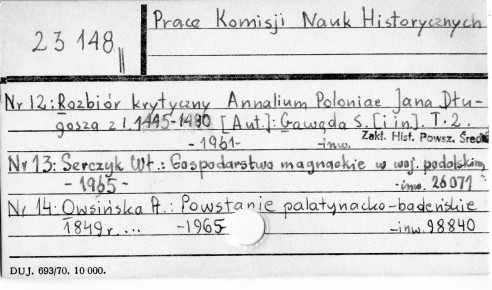 23148 II
Prace Komisji Nauk Historycznych
Nr 12: Rozbiór krytyczny Annalium Poloniae Jana Dłu-
gosza z l. 1445-1480 [Aut.]: Gawęda S. [i in]. T. 2.
- 1961- -inw. Zakł. Hist. Powsz. Średn
Nr 13: Serczyk Wł.: Gospodarstwo magnackie w woj. podolskim
- 1965 - -inw. 26071
Nr 14: Owsińska A.: Powstanie palatynacko-badeńskie
1849 r. ... -1965- -inw. 98840
DUJ. 693/70. 10 000.